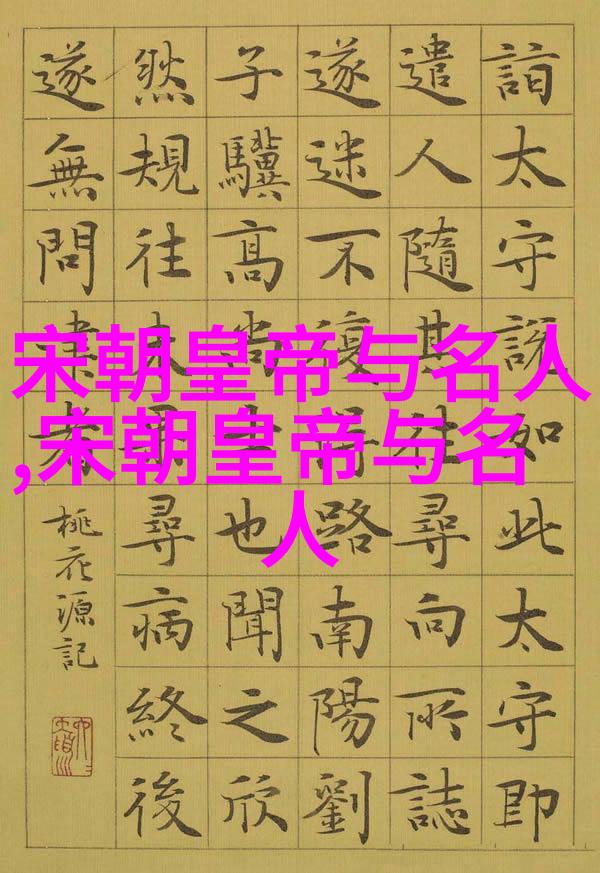 詣太守說如此太守即
遣人隨其往尋向所誌
遂迷不復得路南陽劉
子驥高尚士也聞之欣
然規往未果尋病終後
遂無問津者
桃花源記
宋朝皇帝与名人
,宋朝皇帝与名
人